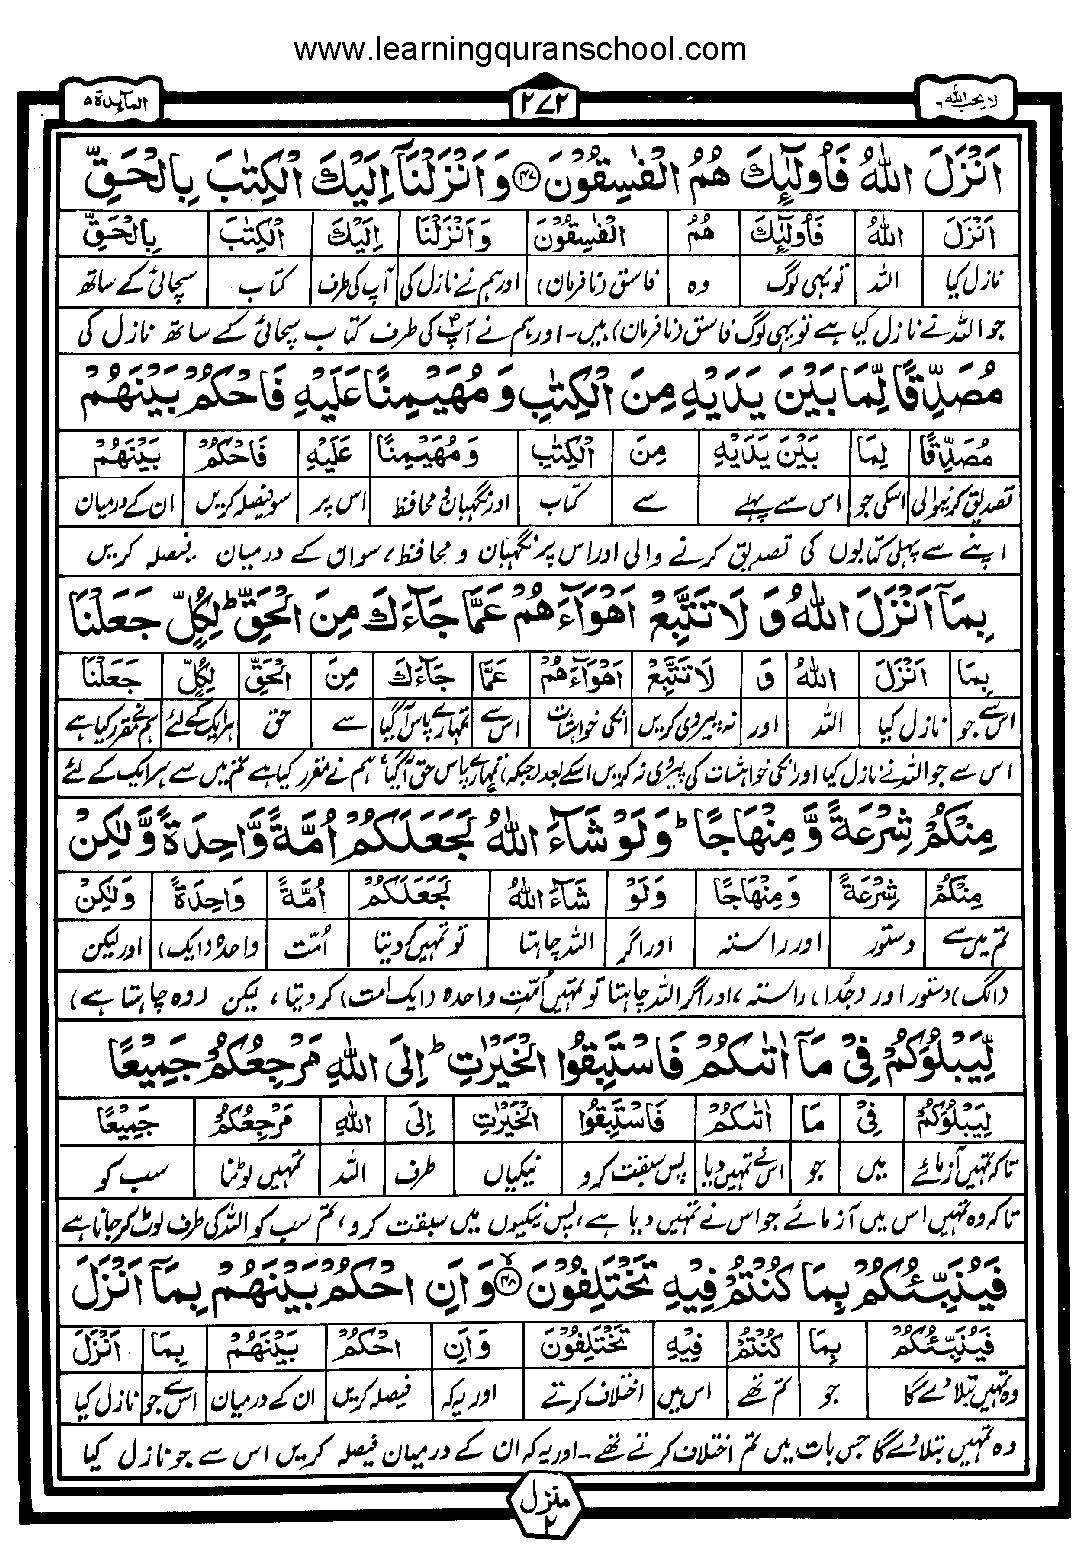 www.learningquranschool.com
لا یحب اللہ ۶
۲۷۲
المآىِٕدة ۵
اَنْزَلَ اللّٰهُ فَاُولٰٓئِكَ هُمُ الْفٰسِقُوْنَ ﴿۴۷﴾ وَ اَنْزَلْنَاۤ اِلَیْكَ الْكِتٰبَ بِالْحَقِّ
اَنْزَلَ اللّٰهُ فَاُولٰٓئِكَ هُمُ الْفٰسِقُوْنَ وَ اَنْزَلْنَا اِلَیْكَ الْكِتٰبَ بِالْحَقِّ
نازل کیا اللہ تو یہی لوگ وہ فاسق (نافرمان) اور ہم نے نازل کی آپ کی طرف کتاب سچائی کے ساتھ
جو اللہ نے نازل کیا ہے تو یہی لوگ فاسق (نافرمان) ہیں۔ اور ہم نے آپؐ کی طرف کتاب سچائی کے ساتھ نازل کی
مُصَدِّقًا لِّمَا بَیْنَ یَدَیْهِ مِنَ الْكِتٰبِ وَ مُهَیْمِنًا عَلَیْهِ فَاحْكُمْ بَیْنَهُمْ
مُصَدِّقًا لِمَا بَیْنَ یَدَیْهِ مِنَ الْكِتٰبِ وَ مُهَیْمِنًا عَلَیْهِ فَاحْكُمْ بَیْنَهُمْ
تصدیق کرنیوالی اسکی جو اس سے پہلے سے کتاب اور نگہبان و محافظ اس پر سو فیصلہ کریں ان کے درمیان
اپنے سے پہلی کتابوں کی تصدیق کرنے والی اور اس پر نگہبان و محافظ، سو ان کے درمیان فیصلہ کریں
بِمَاۤ اَنْزَلَ اللّٰهُ وَ لَا تَتَّبِعْ اَهْوَآءَهُمْ عَمَّا جَآءَكَ مِنَ الْحَقِّ ؕ لِكُلٍّ جَعَلْنَا
بِمَا اَنْزَلَ اللّٰهُ وَ لَا تَتَّبِعْ اَهْوَآءَهُمْ عَمَّا جَآءَكَ مِنَ الْحَقِّ لِكُلٍّ جَعَلْنَا
اس سے جو نازل کیا اللہ اور نہ پیروی کریں انکی خواہشات اس سے تمہارے پاس آ گیا سے حق ہر ایک کے لئے ہم نے مقرر کیا ہے
اس سے جو اللہ نے نازل کیا اور انکی خواہشات کی پیروی نہ کریں اسکے بعد (جبکہ) تمہارے پاس حق آ گیا، ہم نے مقرر کیا ہے تم میں سے ہر ایک کے لئے
مِنْكُمْ شِرْعَةً وَّ مِنْهَاجًا ؕ وَ لَوْ شَآءَ اللّٰهُ لَجَعَلَكُمْ اُمَّةً وَّاحِدَةً وَّ لٰكِنْ
مِنْكُمْ شِرْعَةً وَ مِنْهَاجًا وَ لَوْ شَآءَ اللّٰهُ لَجَعَلَكُمْ اُمَّةً وَاحِدَةً وَ لٰكِنْ
تم میں سے دستور اور راستہ اور اگر اللہ چاہتا تو تمہیں کر دیتا اُمّت واحدہ (ایک) اور لیکن
(الگ) دستور اور (جُدا) راستہ، اور اگر اللہ چاہتا تو تمہیں اُمّتِ واحدہ (ایک امت) کر دیتا، لیکن (وہ چاہتا ہے)
لِّیَبْلُوَكُمْ فِیْ مَاۤ اٰتٰىكُمْ فَاسْتَبِقُوا الْخَیْرٰتِ ؕ اِلَی اللّٰهِ مَرْجِعُكُمْ جَمِیْعًا
لِیَبْلُوَكُمْ فِیْ مَا اٰتٰىكُمْ فَاسْتَبِقُوا الْخَیْرٰتِ اِلَی اللّٰهِ مَرْجِعُكُمْ جَمِیْعًا
تاکہ تمہیں آزمائے میں جو اس نے تمہیں دیا پس سبقت کرو نیکیاں طرف اللہ تمہیں لوٹنا سب کو
تاکہ وہ تمہیں اس میں آزمائے جو اس نے تمہیں دیا ہے، پس نیکیوں میں سبقت کرو، تم سب کو اللہ کی طرف لوٹ کر جانا ہے
فَیُنَبِّئُكُمْ بِمَا كُنْتُمْ فِیْهِ تَخْتَلِفُوْنَ ﴿۴۸﴾ۙ وَ اَنِ احْكُمْ بَیْنَهُمْ بِمَاۤ اَنْزَلَ
فَیُنَبِّئُكُمْ بِمَا كُنْتُمْ فِیْهِ تَخْتَلِفُوْنَ وَ اَنِ احْكُمْ بَیْنَهُمْ بِمَا اَنْزَلَ
وہ تمہیں بتلا دے گا جو تم تھے اس میں اختلاف کرتے اور یہ کہ فیصلہ کریں ان کے درمیان اس سے جو نازل کیا
وہ تمہیں بتلا دے گا جس بات میں تم اختلاف کرتے تھے۔ اور یہ کہ ان کے درمیان فیصلہ کریں اس سے جو نازل کیا
منزل ۲